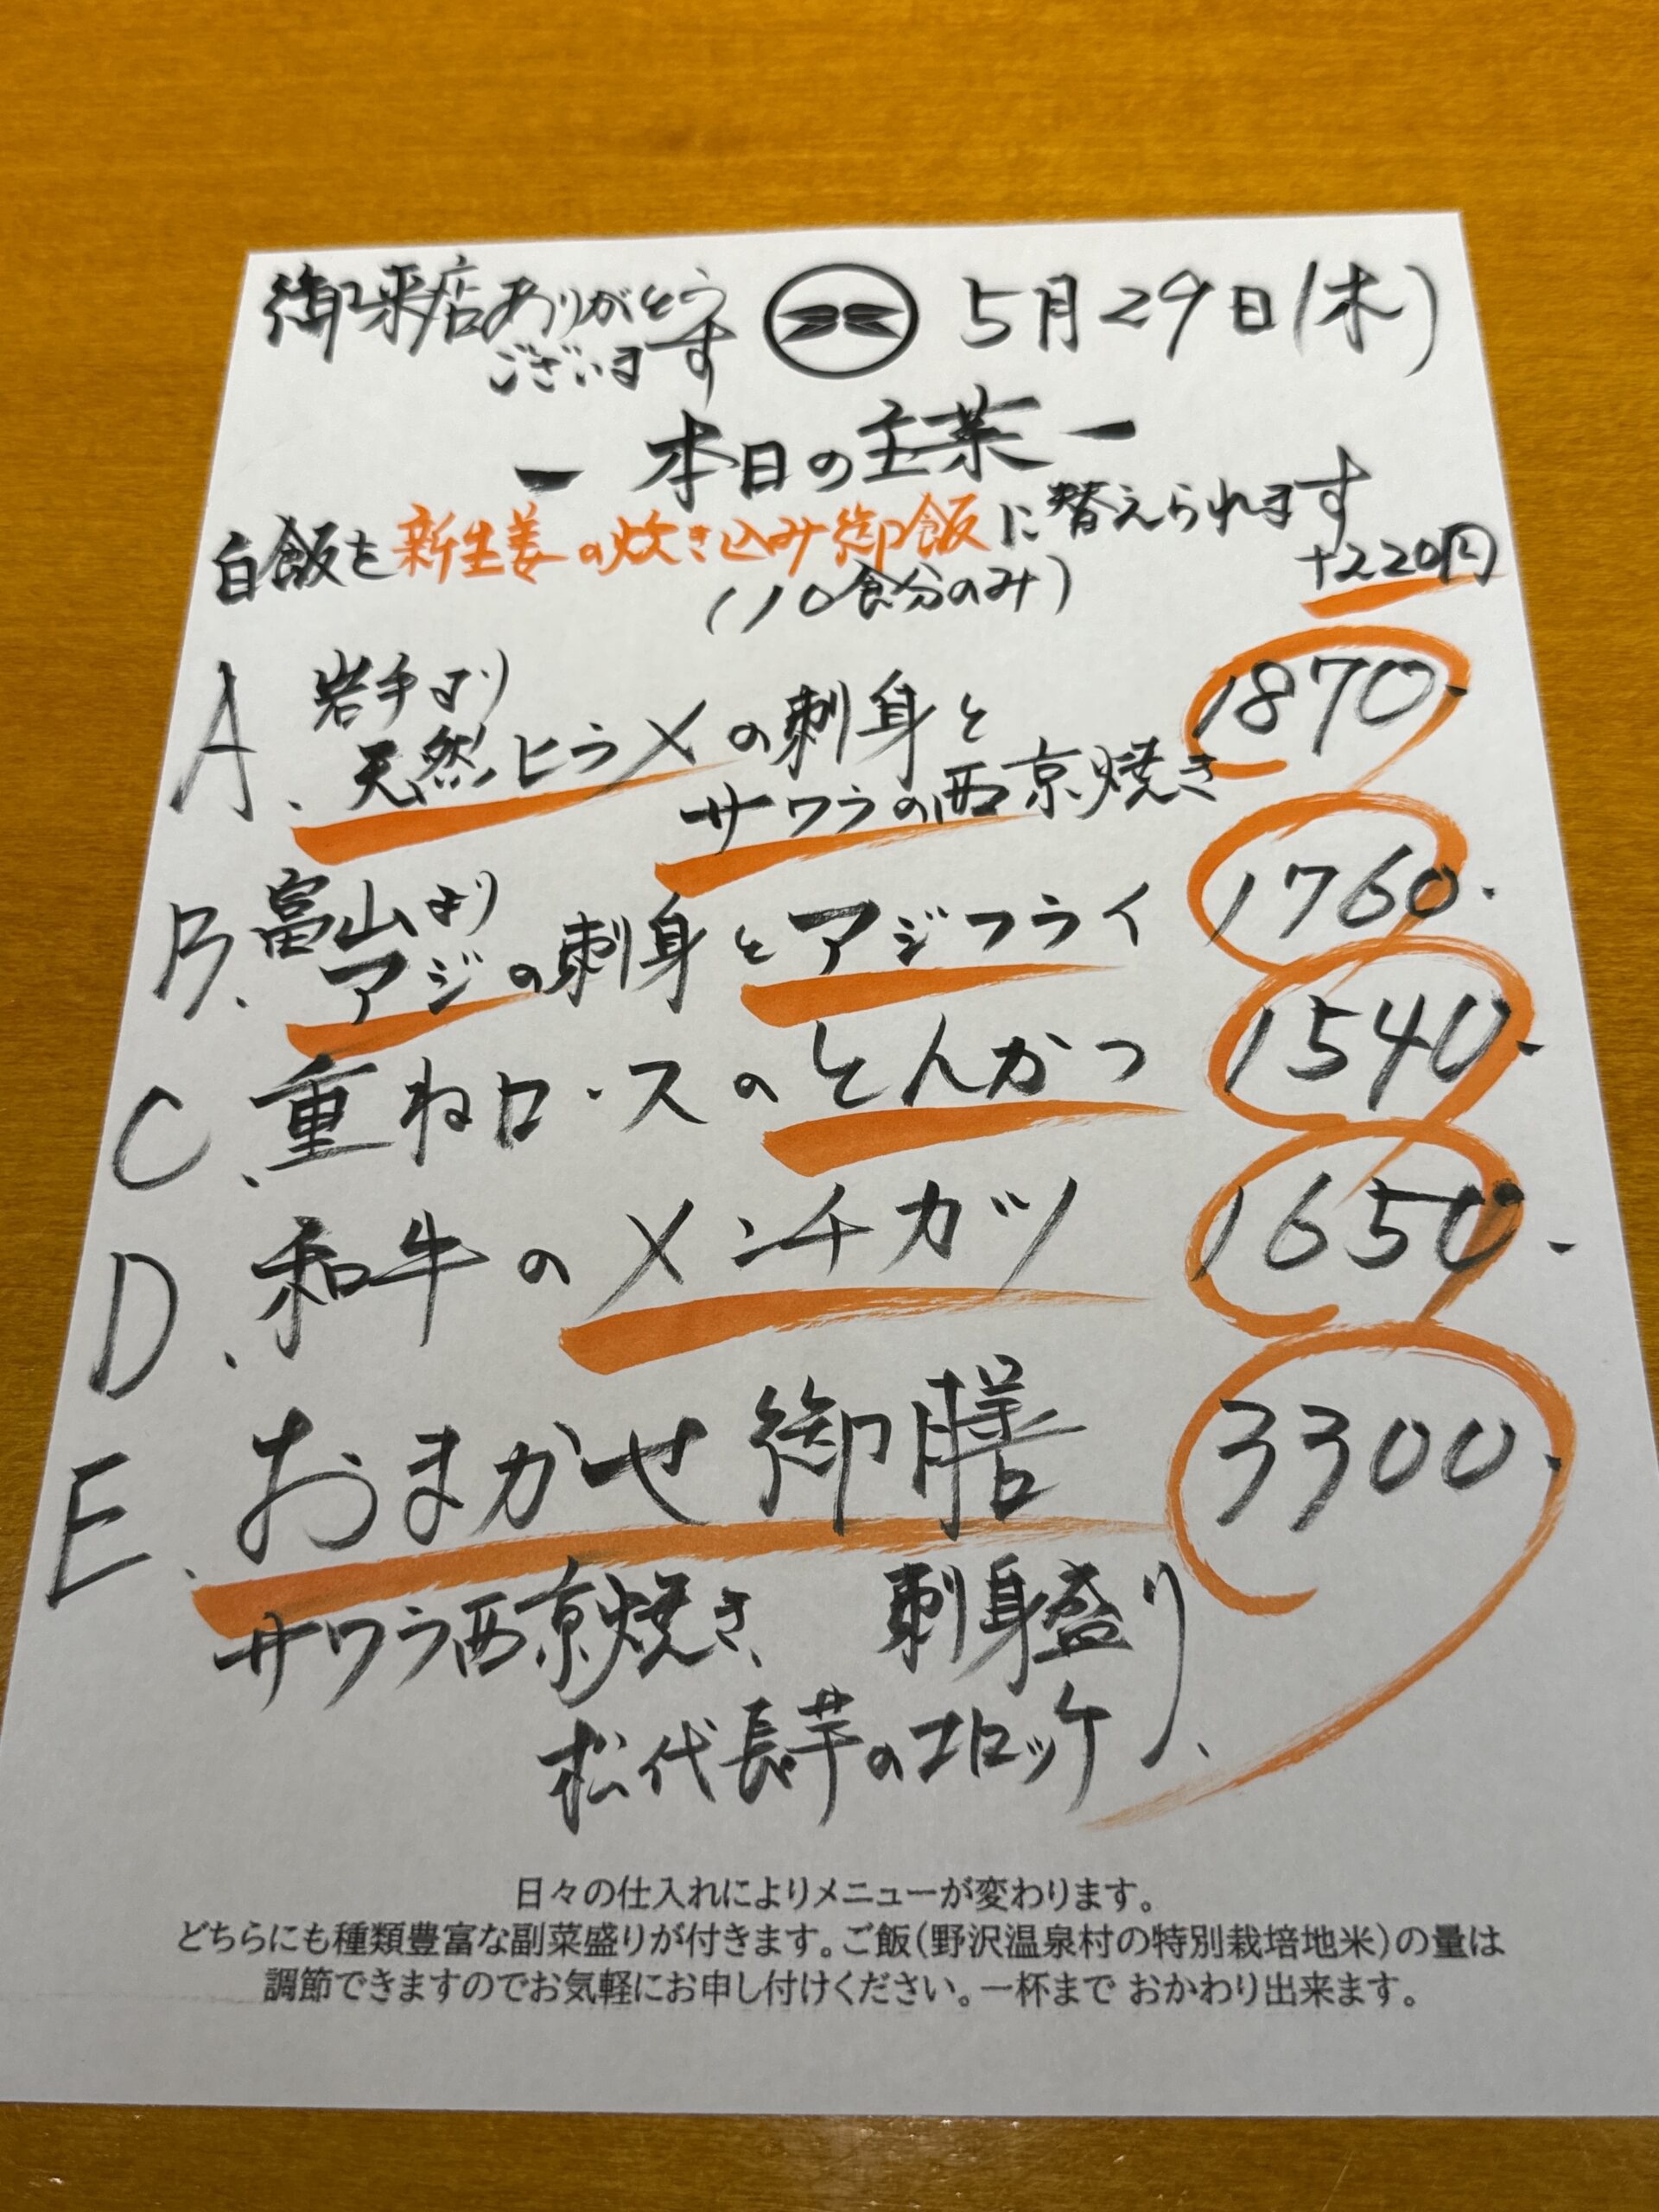 御来店ありがとう
ございます
5月29日(木)
ー 本日の主菜 ー
白飯を新生姜の炊き込み御飯に替えられます
(10食分のみ)
+220円
A. 岩手より
天然ヒラメの刺身と
サワラの西京焼き
1870.
B. 富山より
アジの刺身とアジフライ
1760.
C. 重ねロースのとんかつ
1540.
D. 和牛のメンチカツ
1650.
E. おまかせ御膳
3300.
サワラ西京焼き、刺身盛り、
松代長芋のコロッケ
日々の仕入れによりメニューが変わります。
どちらにも種類豊富な副菜盛りが付きます。ご飯(野沢温泉村の特別栽培地米)の量は
調節できますのでお気軽にお申し付けください。一杯まで おかわり出来ます。